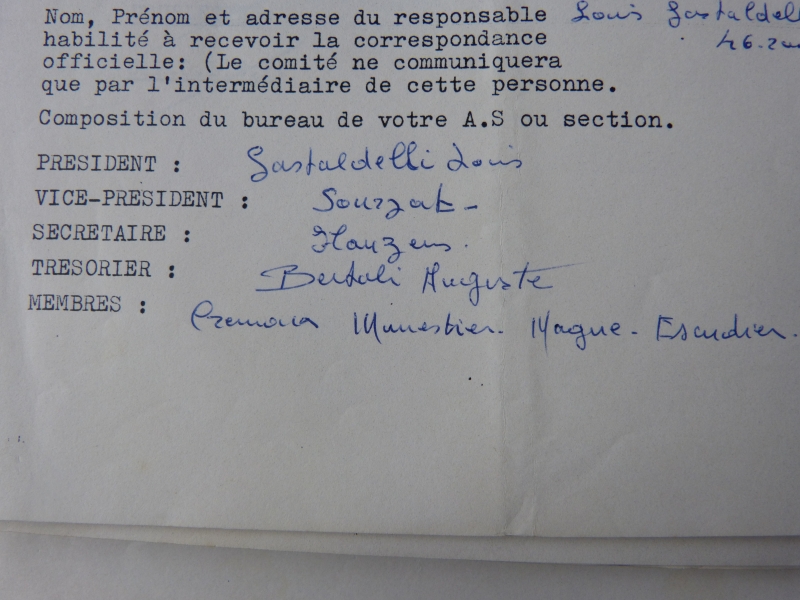 Nom, Prénom et adresse du responsable Louis Gastaldell
habilité à recevoir la correspondance 46.200
officielle: (Le comité ne communiquera
que par l'intermédiaire de cette personne.
Composition du bureau de votre A.S ou section.
PRESIDENT : Gastaldelli Louis
VICE-PRESIDENT : Sourzat -
SECRETAIRE : Hauzens.
TRESORIER : Bertoli Auguste
MEMBRES :
Cremona Manestier. Magne - Escudier.